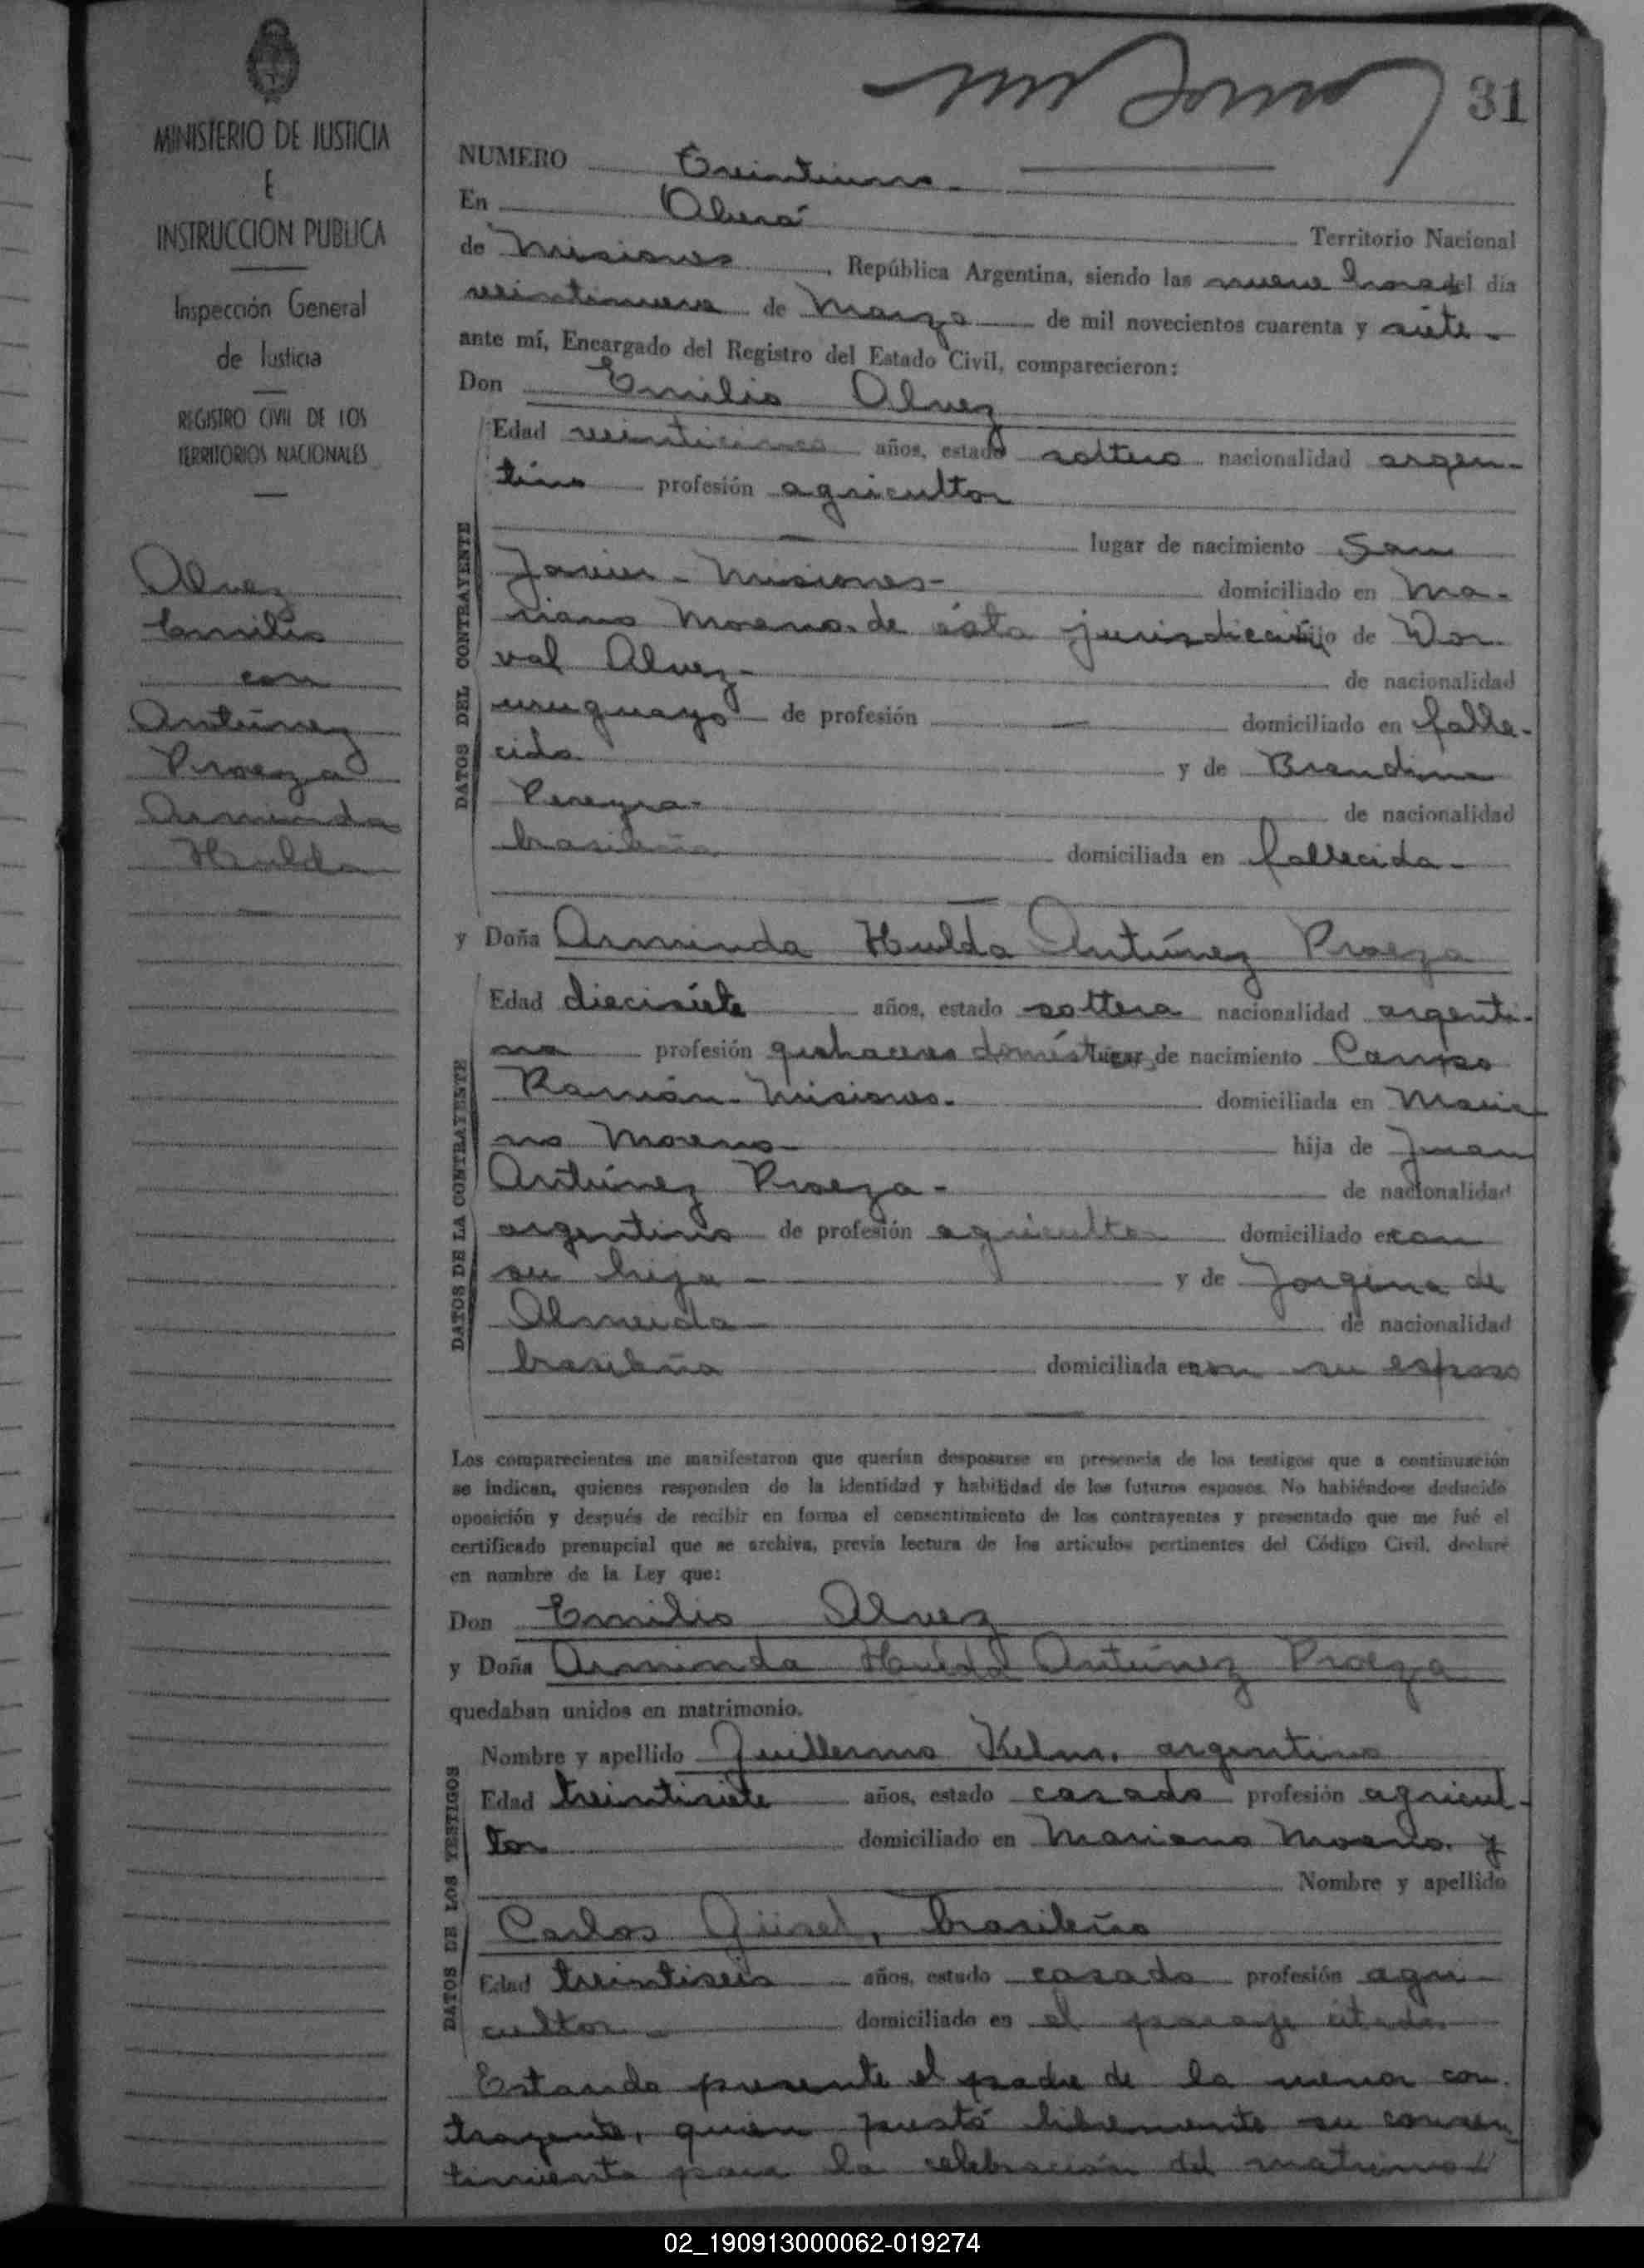 31
MINISTERIO DE JUSTICIA
E
INSTRUCCION PUBLICA
Inspección General
de Justicia
REGISTRO CIVIL DE LOS
TERRITORIOS NACIONALES
Alvez
Emilio
con
Antúnez
Proeza
Arminda
Hulda
NUMERO Treintiuno
En Oberá
Territorio Nacional
de Misiones, República Argentina, siendo las nueve horas del día
veintinueve de Marzo de mil novecientos cuarenta y siete
ante mí, Encargado del Registro del Estado Civil, comparecieron:
Don Emilio Alvez
DATOS DEL CONTRAYENTE
Edad veinticinco años, estado soltero nacionalidad argen-
tino profesión agricultor
lugar de nacimiento San
Javier - Misiones - domiciliado en Ma-
riano Moreno de ésta jurisdicción hijo de Dor
val Alvez - de nacionalidad
uruguayo de profesión — domiciliado en falle-
cido y de Brandina
Pereyra - de nacionalidad
brasileña domiciliada en fallecida -
y Doña Arminda Hulda Antúnez Proeza
DATOS DE LA CONTRAYENTE
Edad diecisiete años, estado soltera nacionalidad argenti-
na profesión quehaceres domést. lugar de nacimiento Campo
Ramón - Misiones. domiciliada en Maria
no Moreno hija de Juan
Antúnez Proeza - de nacionalidad
argentino de profesión agricultor domiciliado en con
su hija - y de Jorgina de
Almeida de nacionalidad
brasileña domiciliada en con su esposo
Los comparecientes me manifestaron que querían desposarse en presencia de los testigos que a continuación
se indican, quienes responden de la identidad y habilidad de los futuros esposos. No habiéndose deducido
oposición y después de recibir en forma el consentimiento de los contrayentes y presentado que me fué el
certificado prenupcial que se archiva, previa lectura de los artículos pertinentes del Código Civil, declaré
en nombre de la Ley que:
Don Emilio Alvez
y Doña Arminda Hulda Antúnez Proeza
quedaban unidos en matrimonio.
DATOS DE LOS TESTIGOS
Nombre y apellido Guillermo Kelm, argentino
Edad treintisiete años, estado casado profesión agricul-
tor domiciliado en Mariano Moreno. y
Nombre y apellido
Carlos Güsel, brasileño
Edad treintiseis años, estado casado profesión agri
cultor - domiciliado en el paraje citado
Estando presente el padre de la menor con-
trayente, quien prestó libremente su consen-
timiento para la celebración del matrimo
02_190913000062-019274